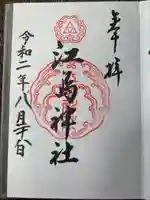 奉拝
江島神社
令和二年八月二十八日